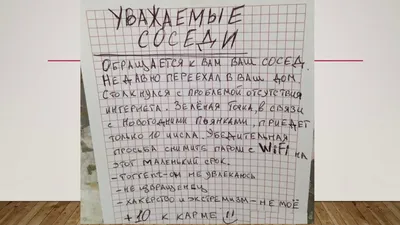 УВАЖАЕМЫЕ
СОСЕДИ
ОБРАЩАЕТСЯ К ВАМ ВАШ СОСЕД.
НЕДАВНО ПЕРЕЕХАЛ В ВАШ ДОМ.
СТОЛКНУЛСЯ С ПРОБЛЕМОЙ ОТСУТСТВИЯ
ИНТЕРНЕТА. ЗЕЛЁНАЯ ТОЧКА, В СВЯЗИ
С НОВОГОДНИМИ ПЬЯНКАМИ, ПРИЕДЕТ
ТОЛЬКО 10 ЧИСЛА. УБЕДИТЕЛЬНАЯ
ПРОСЬБА СНИМИТЕ ПАРОЛЬ С WiFi НА
ЭТОТ МАЛЕНЬКИЙ СРОК.
- ТОРРЕНТ-ОМ НЕ УВЛЕКАЮСЬ
- НЕ ИЗВРАЩЕНЕЦ
- ХАКЕРСТВО И ЭКСТРЕМИЗМ - НЕ МОЁ
+10 К КАРМЕ